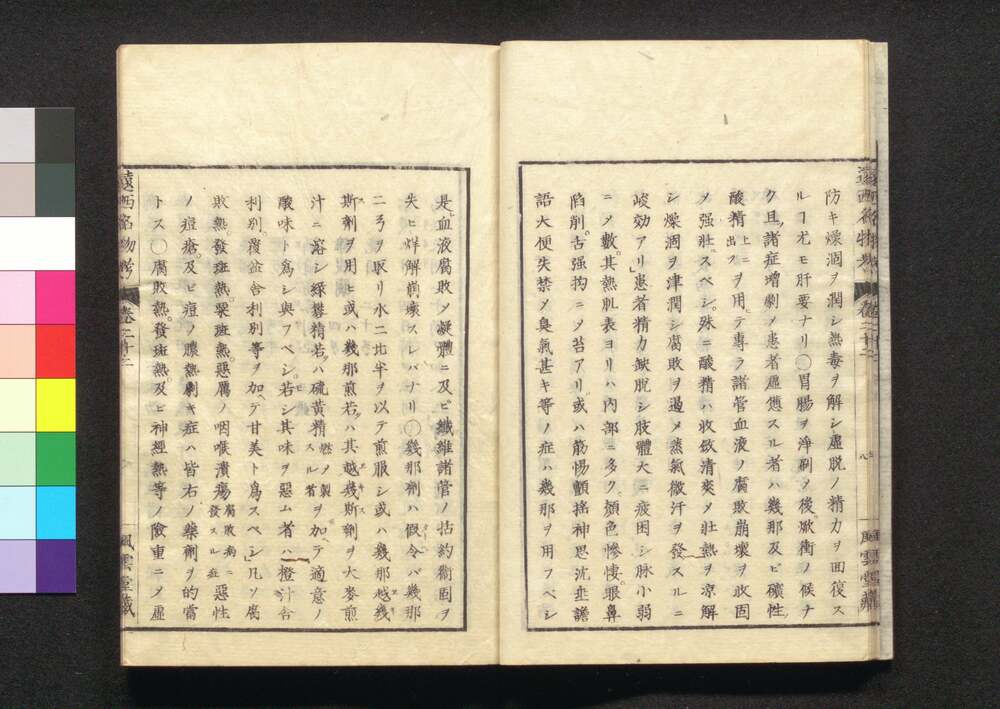 防キ燥涸ヲ潤シ熱毒ヲ解シ虚脱ノ精力ヲ回復ス
ルコ尤モ肝要ナリ○胃腸ヲ淨刷メ後、焮衝ノ候ナ
ク且諸症増劇メ患者虚憊スル者ハ幾那及ビ礦性
酸精上ニ出ツヲ用テ專ラ諸管血液ノ腐敗崩壊ヲ收固
メ强壯スベシ。殊ニ酸精ハ收斂清爽メ壯熱ヲ涼解
シ燥涸ヲ津潤シ腐敗ヲ遏メ蒸氣微汗ヲ發スルニ
峻効アリ」患者精力缺脱シ肢體大ニ疲困シ脉小弱
ニメ數。其熱肌表ヨリハ内部ニ多ク。顔色慘悽。眼鼻
陷削。舌强拘ニメ苔アリ或ハ筋惕顫搖神思沈埀譫
語大便失禁メ臭氣甚キ等ノ症ハ幾那ヲ用フベシ
遠西名物考 卷之廿二 八 風雲堂藏
是血液腐敗メ凝體ニ及ビ纖維諸管ノ括約衞固ヲ
失ヒ烊解崩壊スレバナリ○幾那劑ハ假令バ幾那
二弓ヲ取リ水二比半ヲ以テ煎服シ或ハ幾那越幾
斯劑ヲ用ヒ或ハ幾那煎若ハ其越幾斯劑ヲ大麥煎
汁ニ溶シ緑礬精若ハ硫黄精燃メ製スル者ヲ加ヘテ適意ノ
酸味ト爲シ與フベシ。若シ其味ヲ惡ム者ハ橙汁舎
利別、覆盆舎利別等ヲ加ヘテ甘美ト爲スベシ」凡ソ腐
敗熱。發斑熱。紫斑熱。惡厲ノ咽喉潰瘍腐敗病ニ發スル症惡性
ノ痘瘡。及ビ痘ノ膿熱劇キ症ハ皆右ノ藥劑ヲ的當
トス○腐敗熱。發斑熱。及ビ神經熱等ノ險重ニメ虚
遠西名物考 卷之廿二 風雲堂藏